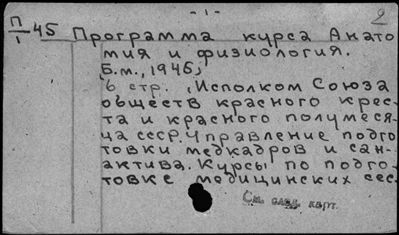 - 1 -
2
П/1 45 Программа курса Анато
мия и физиология.
Б.м., 1945,
6 стр. (Исполком Союза
обществ красного крес-
та и красного полумеся-
ца СССР. Управление подго
товки медкадров и сан-
актива. Курсы по подго-
товке медицинских сес.
См. след. карт.